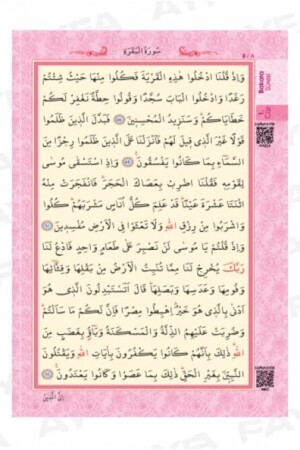 سُورَةُ الْبَقَرَةِ
٨ / 8
Bakara
Suresi
وَاِذْ قُلْنَا ادْخُلُوا هٰذِهِ الْقَرْيَةَ فَكُلُوا مِنْهَا حَيْثُ شِئْتُمْ
رَغَدًا وَادْخُلُوا الْبَابَ سُجَّدًا وَقُولُوا حِطَّةٌ نَغْفِرْ لَكُمْ
خَطَايَاكُمْ وَسَنَزِيدُ الْمُحْسِنِينَ فَبَدَّلَ الَّذِينَ ظَلَمُوا
قَوْلًا غَيْرَ الَّذِى قِيلَ لَهُمْ فَاَنْزَلْنَا عَلَى الَّذِينَ ظَلَمُوا رِجْزًا مِنَ
السَّمَاءِ بِمَا كَانُوا يَفْسُقُونَ وَاِذِ اسْتَسْقٰى مُوسٰى
لِقَوْمِهِ فَقُلْنَا اضْرِبْ بِعَصَاكَ الْحَجَرَ فَانْفَجَرَتْ مِنْهُ
اثْنَتَا عَشْرَةَ عَيْنًا قَدْ عَلِمَ كُلُّ اُنَاسٍ مَشْرَبَهُمْ كُلُوا
وَاشْرَبُوا مِنْ رِزْقِ اللّٰهِ وَلَا تَعْثَوْا فِى الْاَرْضِ مُفْسِدِينَ
وَاِذْ قُلْتُمْ يَا مُوسٰى لَنْ نَصْبِرَ عَلٰى طَعَامٍ وَاحِدٍ فَادْعُ لَنَا
رَبَّكَ يُخْرِجْ لَنَا مِمَّا تُنْبِتُ الْاَرْضُ مِنْ بَقْلِهَا وَقِثَّائِهَا
وَفُومِهَا وَعَدَسِهَا وَبَصَلِهَا قَالَ اَتَسْتَبْدِلُونَ الَّذِى هُوَ
اَدْنٰى بِالَّذِى هُوَ خَيْرٌ اِهْبِطُوا مِصْرًا فَاِنَّ لَكُمْ مَا سَاَلْتُمْ
وَضُرِبَتْ عَلَيْهِمُ الذِّلَّةُ وَالْمَسْكَنَةُ وَبَاؤُ بِغَضَبٍ مِنَ
اللّٰهِ ذٰلِكَ بِاَنَّهُمْ كَانُوا يَكْفُرُونَ بِاٰيَاتِ اللّٰهِ وَيَقْتُلُونَ
النَّبِيِّنَ بِغَيْرِ الْحَقِّ ذٰلِكَ بِمَا عَصَوْا وَكَانُوا يَعْتَدُونَ
اِنَّ الَّذِينَ